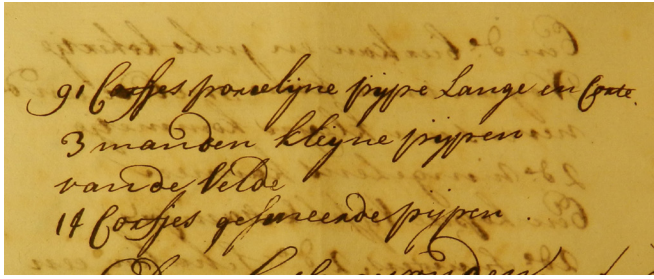 91 Corfjes porcelijne pijpe Lange en Corte.
3 manden kleijne pijpen
van de Velde
14 Corfjes gesneerde pijpen.